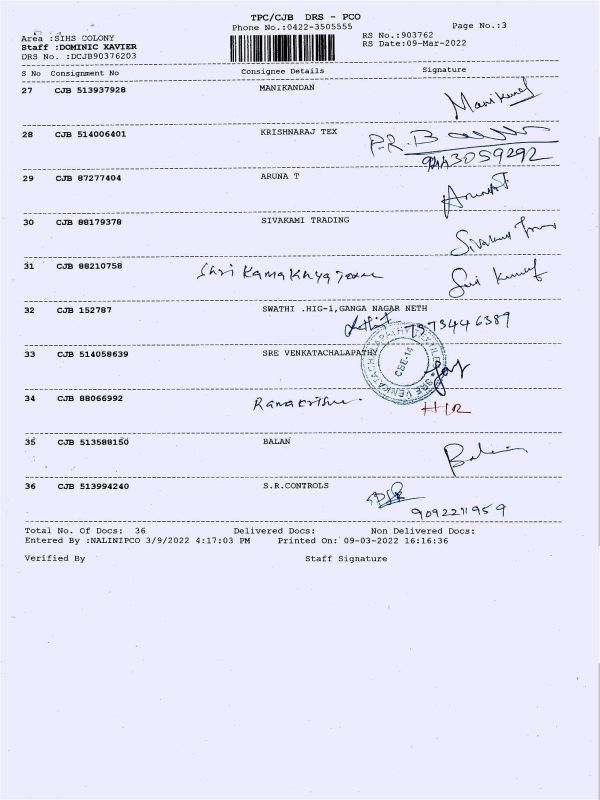 TPC/CJB DRS - PCO
Phone No.:0422-3505555
Page No.:3
Area :SIHS COLONY
RS No.:903762
Staff :DOMINIC XAVIER
RS Date:09-Mar-2022
DRS No. :DCJB90376203
S No Consignment No Consignee Details Signature
27 CJB 513937928 MANIKANDAN
Manikandan
28 CJB 514006401 KRISHNARAJ TEX
P.R.
9443059292
29 CJB 87277404 ARUNA T
Aruna T
30 CJB 88179378 SIVAKAMI TRADING
Sivakami
31 CJB 88210758 Shri Kamakhya
32 CJB 152787 SWATHI .HIG-1,GANGA NAGAR NETH
7373446389
33 CJB 514058639 SRE VENKATACHALAPATHY
SRE VENKATACHALAPATHY TEXTILES
CBE-14
34 CJB 88066992 Ramakrishna
H/R
35 CJB 513588150 BALAN
Balan
36 CJB 513994240 S.R.CONTROLS
9092211959
Total No. Of Docs: 36 Delivered Docs: Non Delivered Docs:
Entered By :NALINIPCO 3/9/2022 4:17:03 PM Printed On: 09-03-2022 16:16:36
Verified By Staff Signature